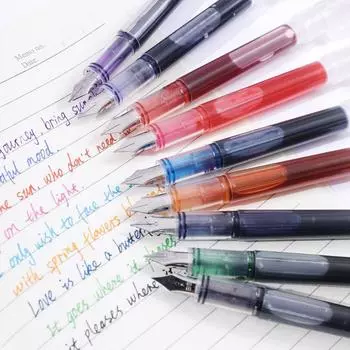 Memo no.
Date
journey, bring sun
mood.
one sun, who don't need
on the light
only wish to face the
with spring flowers
Love is like a butter
It goes where it
it pleases where